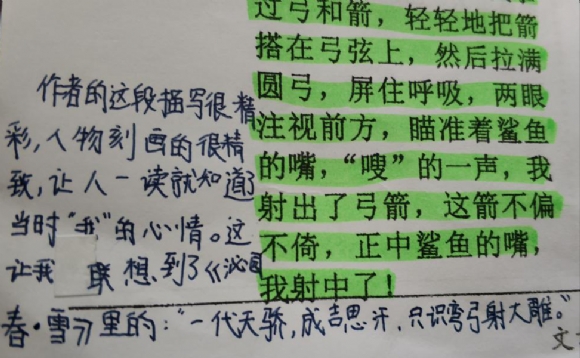 过弓和箭，轻轻地把箭
搭在弓弦上，然后拉满
圆弓，屏住呼吸，两眼
注视前方，瞄准着鲨鱼
的嘴，“嗖”的一声，我
射出了弓箭，这箭不偏
不倚，正中鲨鱼的嘴，
我射中了！
作者的这段描写很精
彩,人物刻画的很精
致,让人一读就知道了
当时"我"的心情。这
让我联想到了《沁园
春·雪》里的:"一代天骄,成吉思汗,只识弯弓射大雕。"
文